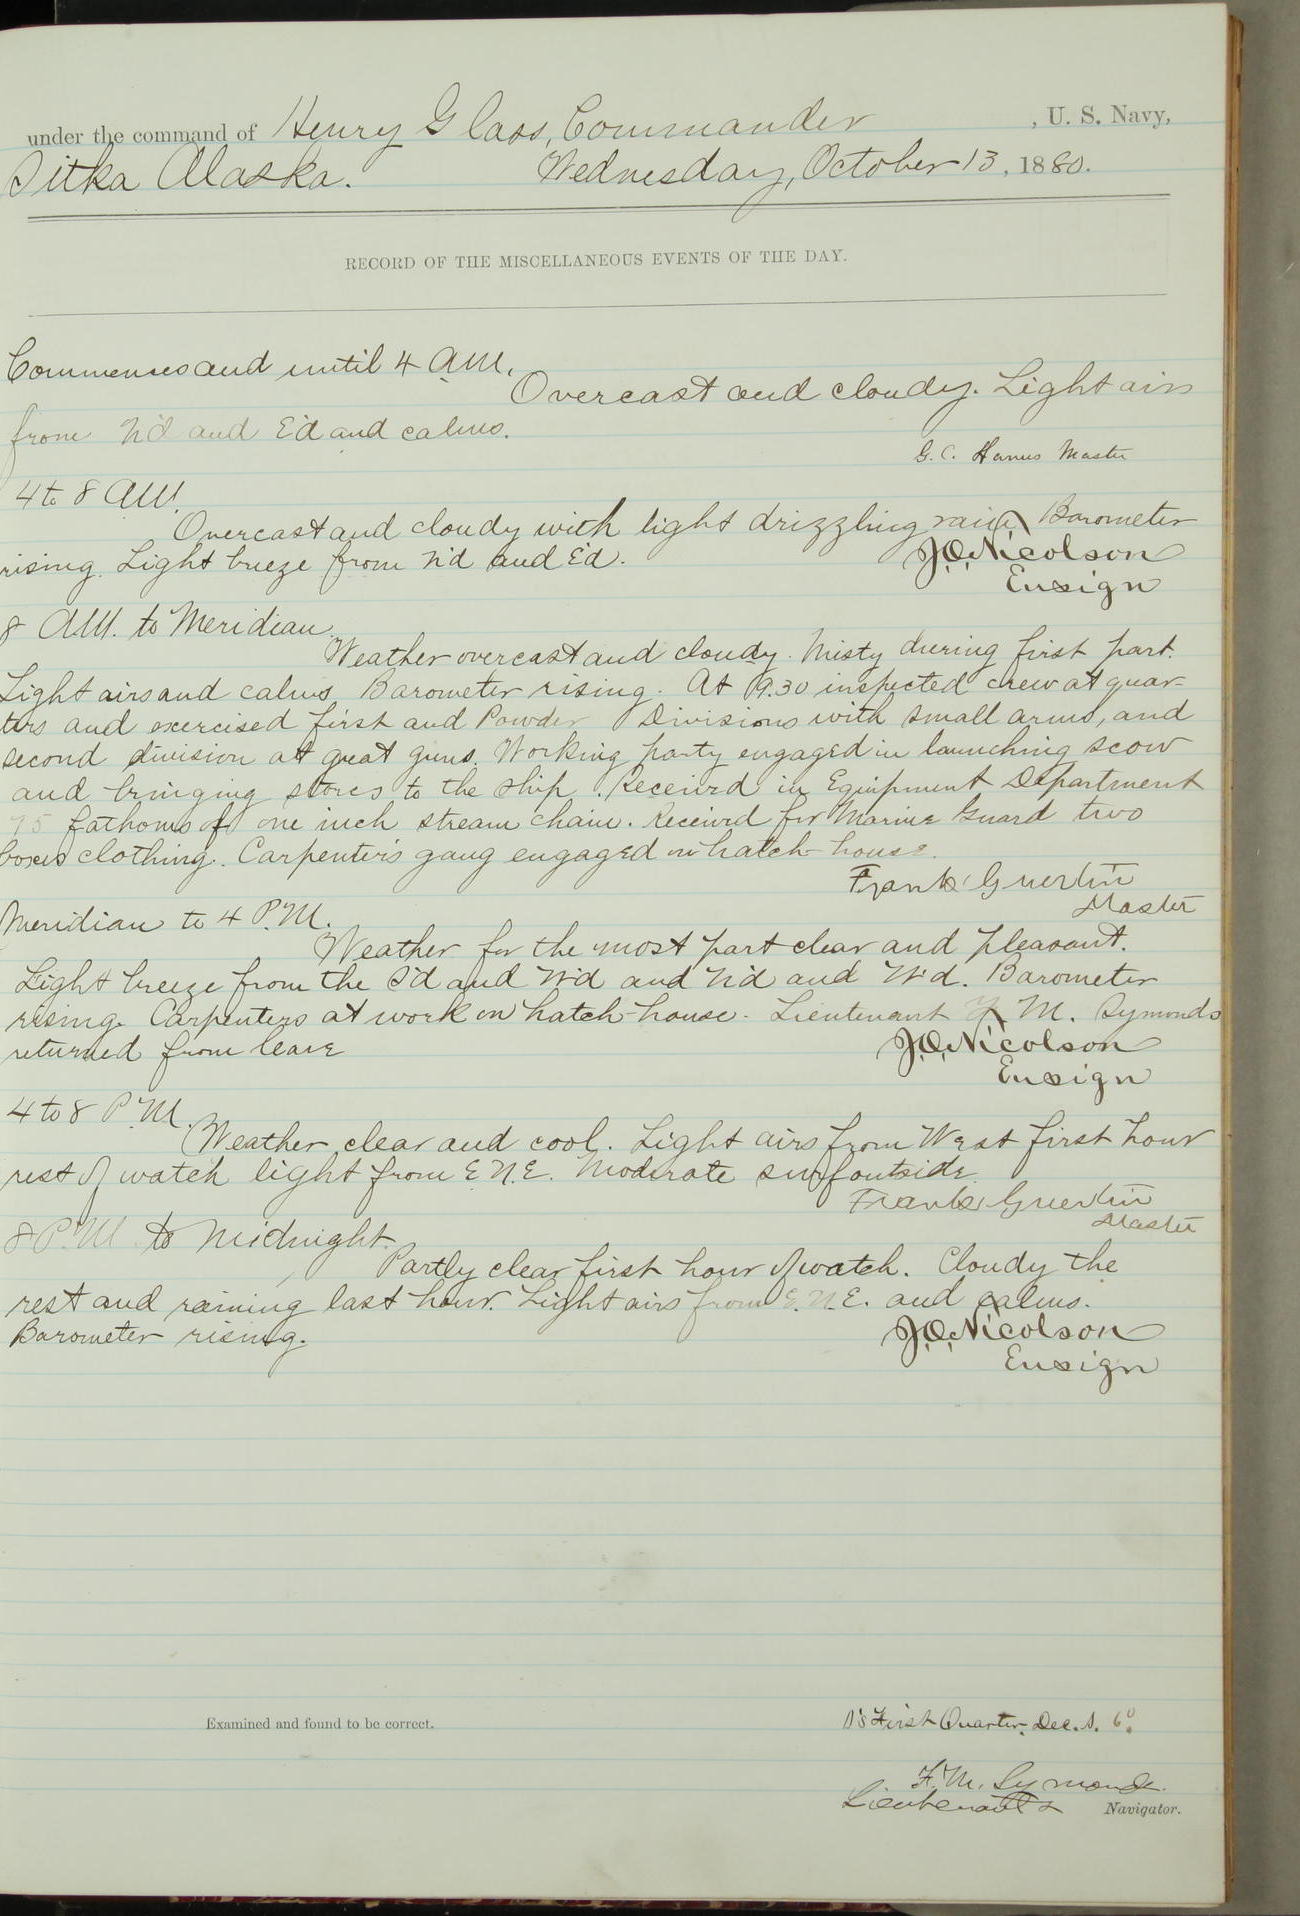 under the command of Henry Glass, Commander , U. S. Navy,
Sitka Alaska. Wednesday, October 13, 1880.
RECORD OF THE MISCELLANEOUS EVENTS OF THE DAY.
Commences and until 4 A.M.
Overcast and cloudy. Light airs
from N'd and E'd and calms.
G. C. Hanus Master
4 to 8 A.M.
Overcast and cloudy with light drizzling rain. Barometer
rising. Light breeze from N'd and E'd.
J.O. Nicolson
Ensign
8 A.M. to Meridian.
Weather overcast and cloudy. Misty during first part.
Light airs and calms. Barometer rising. At 9.30 inspected crew at quar-
ters and exercised first and Powder Divisions with small arms, and
second division at great guns. Working party engaged in launching scow
and bringing stores to the ship. Received in Equipment Department
75 fathoms of one inch stream chain. Received for Marine Guard two
boxes clothing. Carpenter's gang engaged on hatch-house.
Frank Guertin
Master
Meridian to 4 P.M.
Weather for the most part clear and pleasant.
Light breeze from the S'd and W'd and N'd and W'd. Barometer
rising. Carpenters at work on hatch-house. Lieutenant F. M. Symonds
returned from leave
J.O. Nicolson
Ensign
4 to 8 P.M.
Weather clear and cool. Light airs from West first hour
rest of watch light from E.N.E. Moderate surf outside.
Frank Guertin
Master
8 P.M. to Midnight.
Partly clear first hour of watch. Cloudy the
rest and raining last hour. Light airs from E.N.E. and calms.
Barometer rising.
J.O. Nicolson
Ensign
Examined and found to be correct.
First Quarter. Dec. S. 6°.
F. M. Symonds
Lieutenant & Navigator.